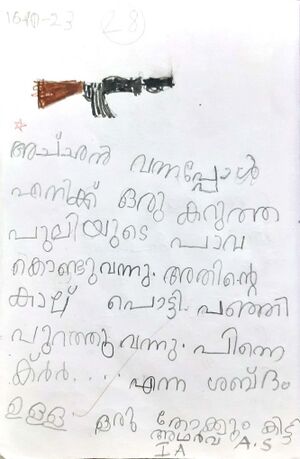 16-10-23
28
അച്ചൻ വന്നപ്പോൾ
എനിക്ക് ഒരു കറുത്ത
പുലിയുടെ പാവ
കൊണ്ടുവന്നു. അതിന്റെ
കാല് പൊട്ടി. പഞ്ഞി
പുറത്തു വന്നു. പിന്നെ
ക്ർർ.... എന്ന ശബ്ദം
ഉള്ള ഒരു തോക്കും കിട്ടി
അഥർവ A.S
I A